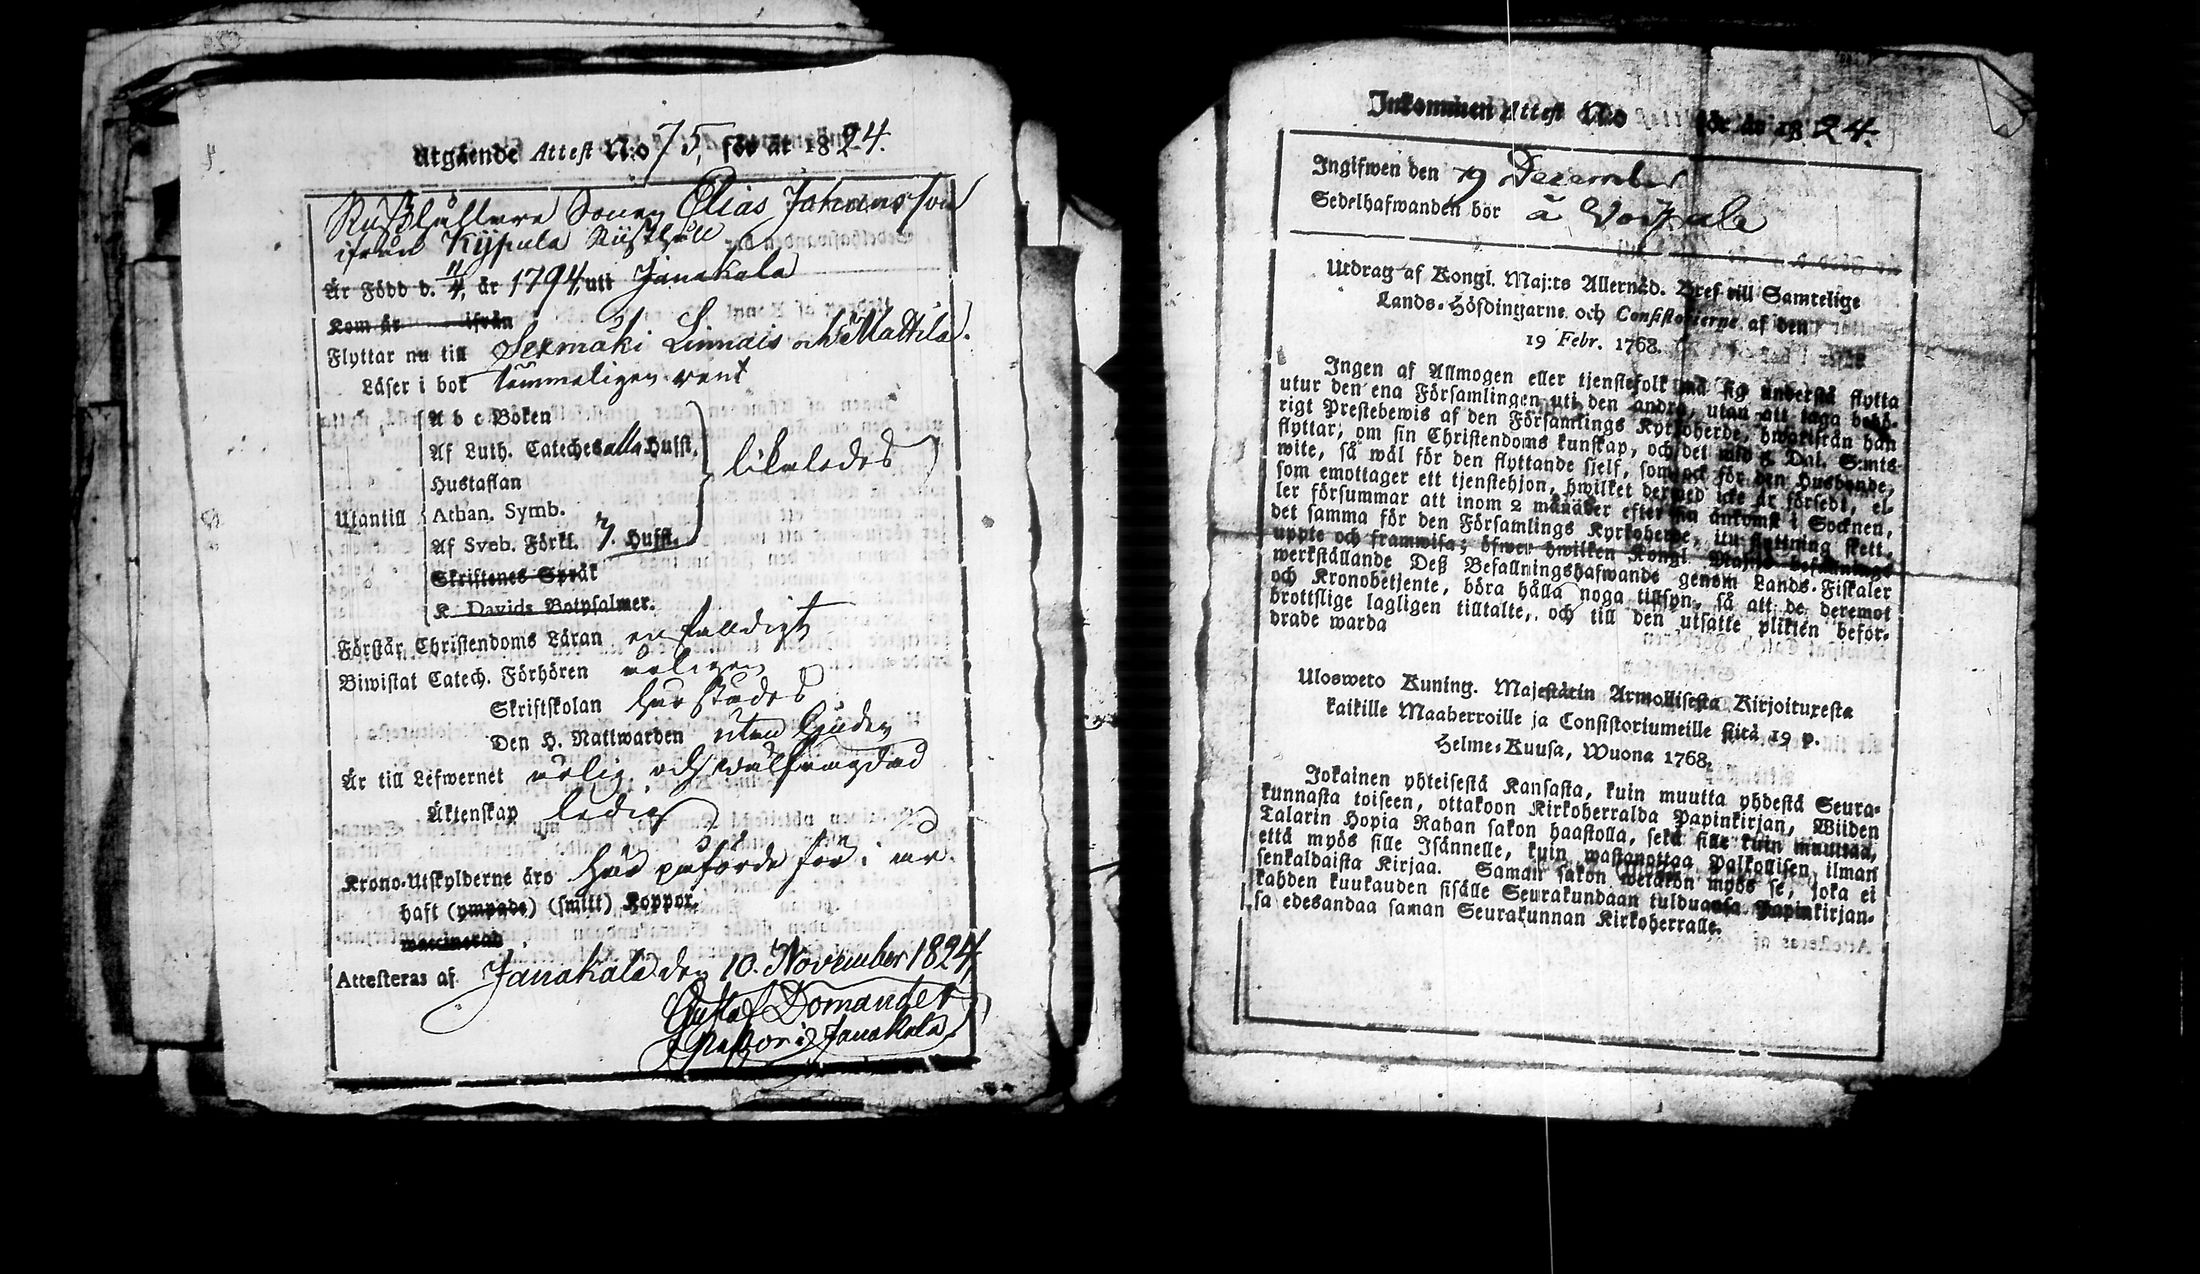 Utgående Attest N:o 75, för år 1824.
Rusthållare Sonen Elias Johansson
ifrån Kijpula Rusthåll
År Född d. 11/4, år 1794, uti Janakala
Kom år ifrån
Flyttar nu till Sexmäki Linnais och Mattila.
Läser i bok temmeligen rent
Utantill
A b c Boken
Af Luth. Cateches alla Hufst.
Hustaflan
Athan. Symb.
Af Sveb. Förkl. 7. Hufst.
Skriftenes Språk
K. Davids Botpsalmer.
likaledes
Förstår Christendoms Läran enfalldigt
Biwistat Catech. Förhören årligen
Skriftskolan härstädes
Den H. Nattwarden
Är till Lefwernet ärlig och wälfrägdad
Äktenskap ledig
Krono-Utskylderne äro här påförde för i år
haft (ympade) (smitt) Koppor.
waccinerad
Attesteras af Janakala den 10. November 1824.
Gustaf Domander
Pastor i Janakala
Inkommen Attest N:o för år 1824.
Ingifwen den 19 December
Sedelhafwanden bor å
Utdrag af Kongl. Maj:ts Allernåd. Bref till Samtelige
Lands-Höfdingarne och Consistorierne af den
19 Febr. 1768.
Ingen af Allmogen eller tjenstefolk må sig understå flytta
utur den ena Församlingen uti den andra, utan att taga behö-
rigt Prestebewis af den Församlings Kyrkoherde, hwarifrån han
flyttar, om sin Christendoms kunskap, och det wid 5 Dal. S:mts
wite, så wäl för den flyttande sjelf, som ock för den Husbonde,
som emottager ett tjenstehjon, hwilket dermed icke är försedt, el-
ler försummar att inom 2 månader efter sin ankomst i Socknen,
det samma för den Församlings Kyrkoherde, itu flyttning skett,
uppte och framwisa; öfwer hwilken Kongl. Maj:ts befallnings
werkställande Deß Befallningshafwande genom Lands-Fiskaler
och Kronobetjente, böra hålla noga tillsyn, så att de deremot
brottslige lagligen tilltalte, och till den utsatte plikten befor-
drade warda
Ulosweto Kuning. Majestätin Armollisesta Kirjoituxesta
kaikille Maaherroille ja Consistoriumeille siitä 19 p.
Helme-Kuusa, Wuona 1768.
Jokainen yhteisestä Kansasta, kuin muutta yhdestä Seura-
kunnasta toiseen, ottakoon Kirkoherralda Papinkirjan, Wiiden
Talarin Hopia Rahan sakon haastolla, sekä sille kuin muuttaa,
että myös sille Isännelle, kuin wastanottaa Palkollisen ilman
senkaldaista Kirjaa. Saman sakon wetäkön myös se, joka ei
kahden kuukauden sisälle Seurakundaan tulduansa Papinkirjan-
sa edesandaa saman Seurakunnan Kirkoherralle.